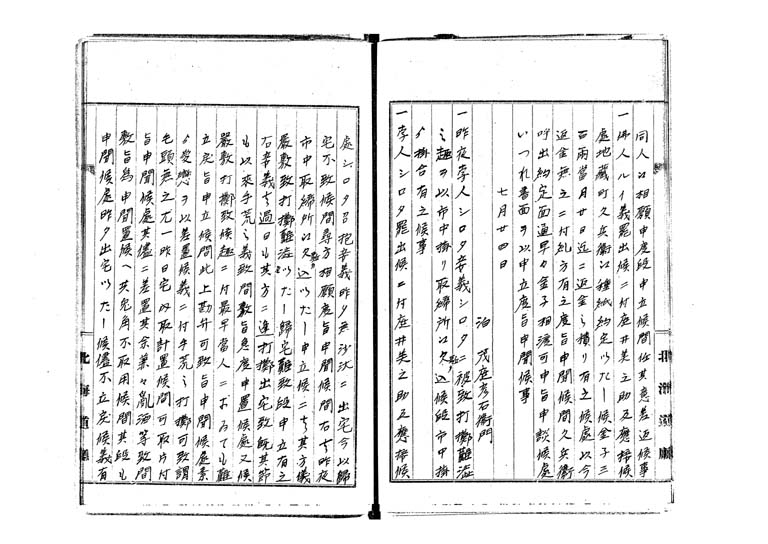 同人江相願申度段申立候間任其意差返候事
一佛人ルイ義罷出候ニ付庭井美之助及應接候
處地蔵町久兵衛江種紙約定いたし候金子三
百両當月廿日迄ニ返金之積り有之候處以今
返金無之ニ付糺方有之度旨申聞候間久兵衛
呼出約定面通早々金子相渡可申旨申談候處
いつれ書面ヲ以申立度旨申聞候事
七月廿四日
泊 茂庭彦右衛門
一昨夜孛人シロタ幸義シロタニ被致打擲難澁
之趣ヲ以市中掛り取締所江欠込候段市中掛
ゟ掛合有之候事
一孛人シロタ罷出候ニ付庭井美之助及應接候
處シロタ召抱幸義昨夕無沙汰ニ出宅今以歸
宅不致候間尋方相願度旨申聞候間右者昨夜
市中取締所江欠込いたし申立候ニ者其方儀
嚴敷致打擲難澁いたし歸宅難致段申立有之
右幸義者過日も其方ニ逢打擲出宅致既其節
も以來手荒之義致間敷旨急度申置候處又候
嚴敷打擲致候趣ニ付最早當人ニおゐても難
立戻旨申立候間此上勘弁可致旨申聞候處素
ゟ愛戀ヲ以差置候義ニ付手荒之打擲可致謂
毛頭無之尤一昨日宅内取計置候間可取片付
旨申聞候處其儘ニ差置其余兼々亂酒等致間
敷旨為申聞置候へ共兎角不取用候間其段も
申聞候處昨夕出宅いたし候儘不立戻候義有
北海道廳